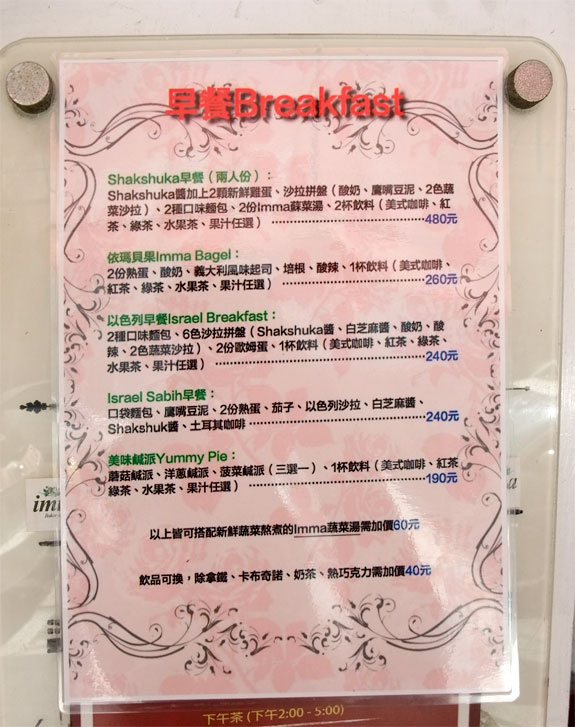 早餐Breakfast
Shakshuka早餐（兩人份）：
Shakshuka醬加上2顆新鮮雞蛋、沙拉拼盤（酸奶、鷹嘴豆泥、2色蔬
菜沙拉）、2種口味麵包、2份Imma蘇菜湯、2杯飲料（美式咖啡、紅
茶、綠茶、水果茶、果汁任選） 480元
依瑪貝果Imma Bagel：
2份熟蛋、酸奶、義大利風味起司、培根、酸辣、1杯飲料（美式咖啡、
紅茶、綠茶、水果茶、果汁任選） 260元
以色列早餐Israel Breakfast：
2種口味麵包、6色沙拉拼盤（Shakshuka醬、白芝麻醬、酸奶、酸
辣、2色蔬菜沙拉）、2份歐姆蛋、1杯飲料（美式咖啡、紅茶、綠茶、
水果茶、果汁任選） 240元
Israel Sabih早餐：
口袋麵包、鷹嘴豆泥、2份熟蛋、茄子、以色列沙拉、白芝麻醬、
Shakshuk醬、土耳其咖啡 240元
美味鹹派Yummy Pie：
蘑菇鹹派、洋蔥鹹派、菠菜鹹派（三選一）、1杯飲料（美式咖啡、紅茶
綠茶、水果茶、果汁任選） 190元
以上皆可搭配新鮮蔬菜熬煮的Imma蔬菜湯需加價60元
飲品可換，除拿鐵、卡布奇諾、奶茶、熱巧克力需加價40元
下午茶 (下午2:00 - 5:00)